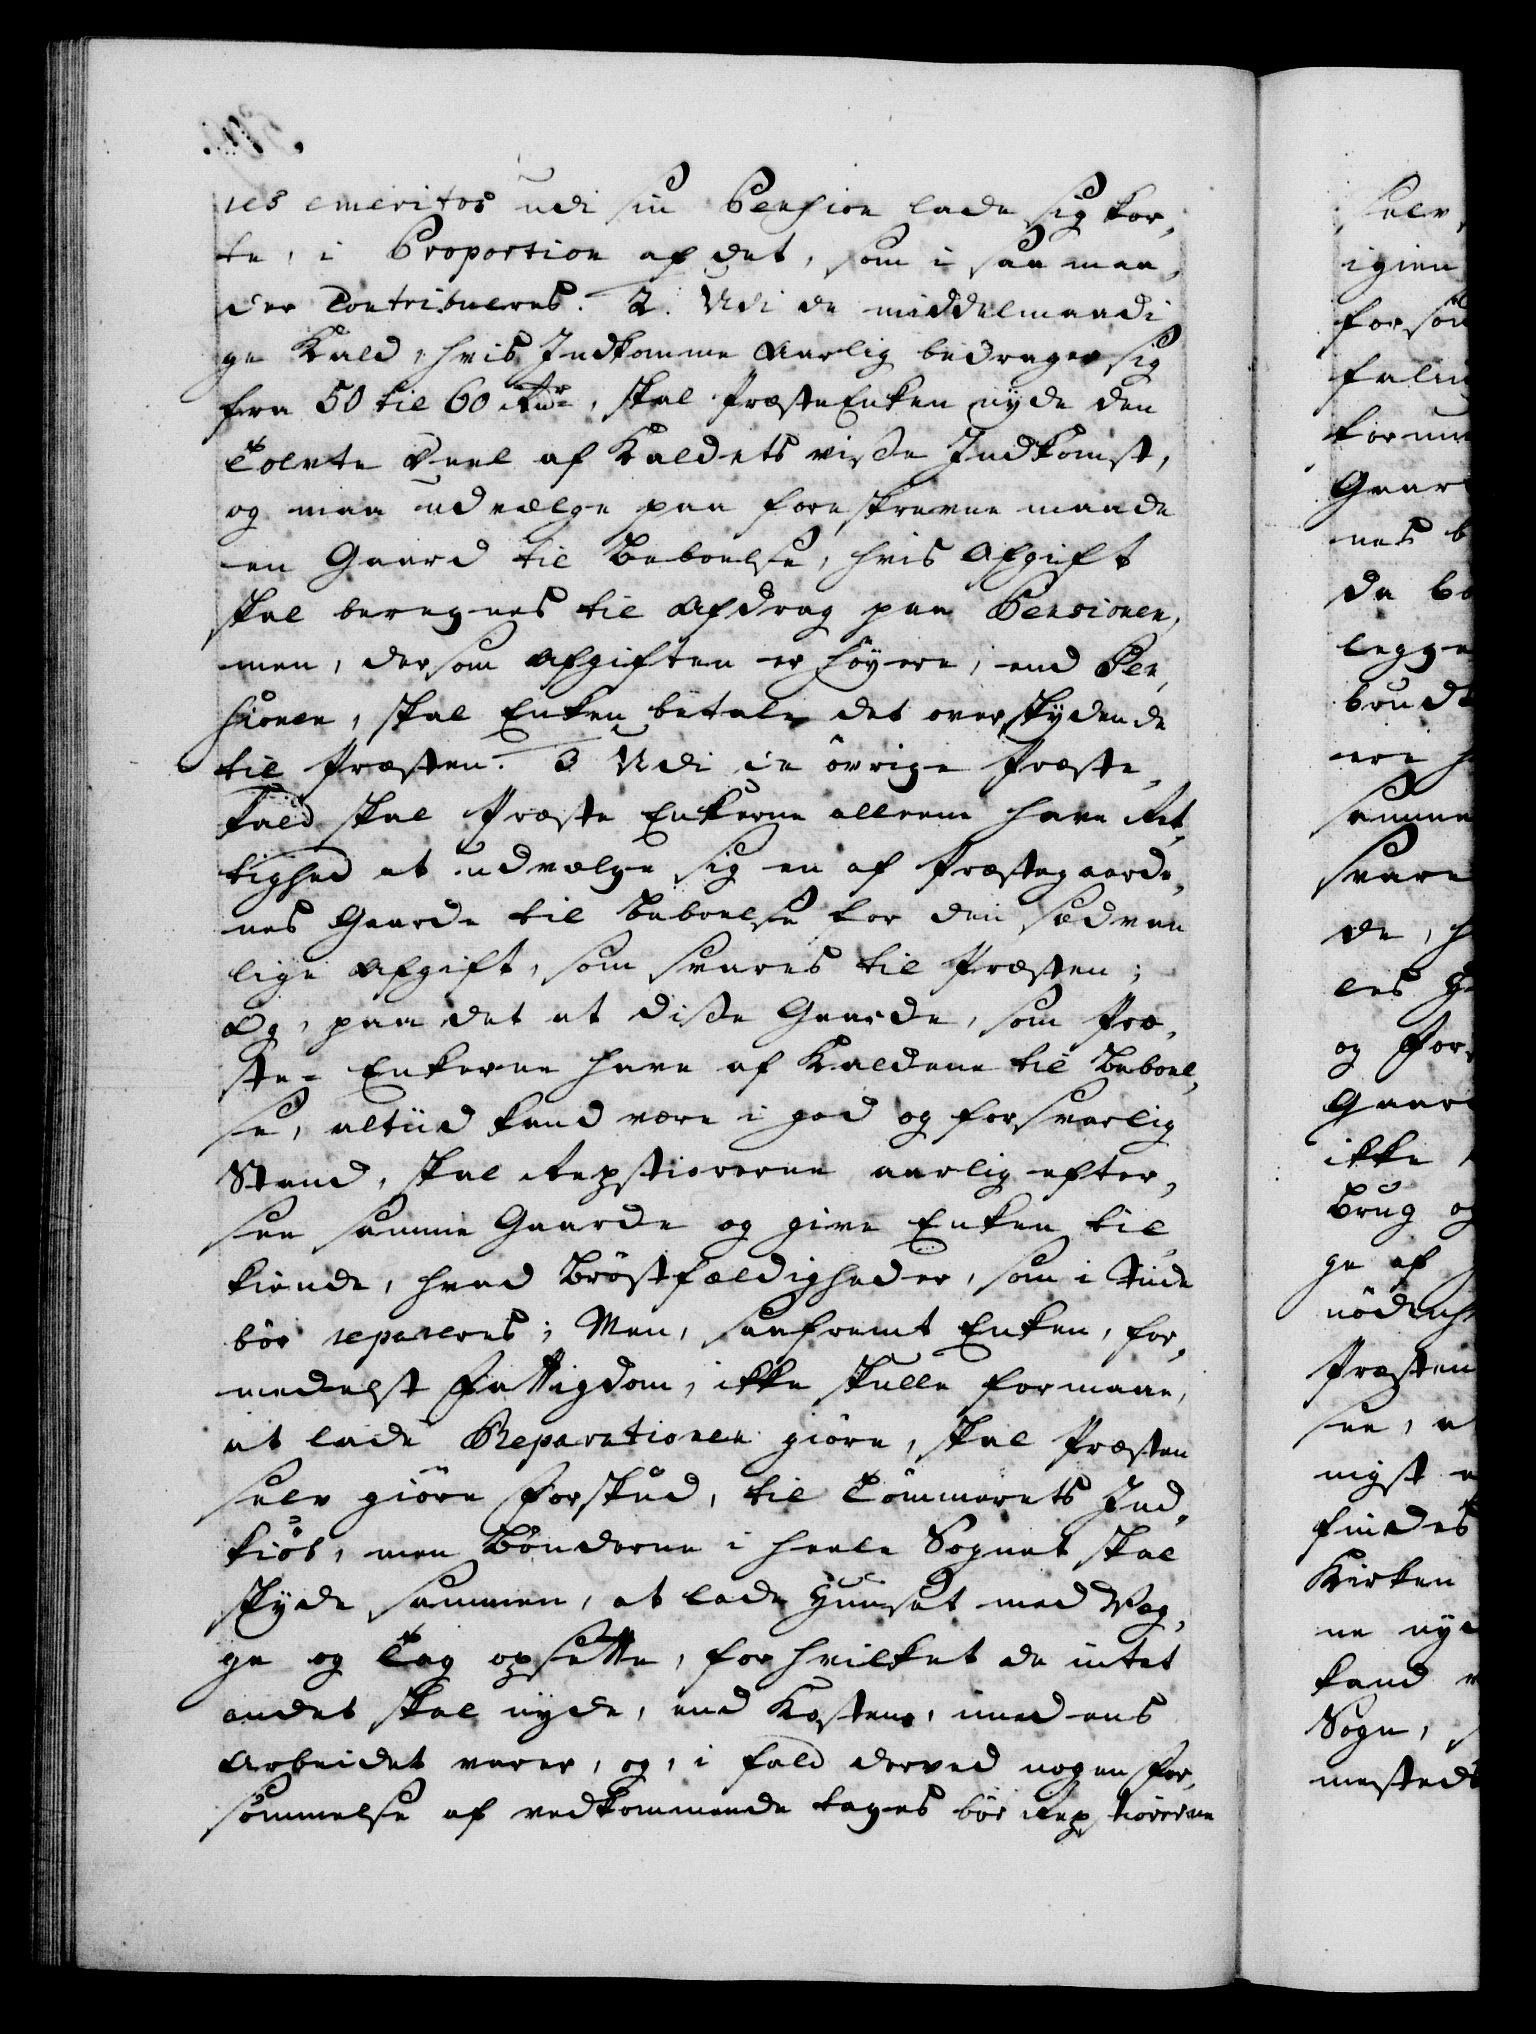 res emeritos udi sin Pension lade sig kor,
te, i Proportion af det, som i saa maa,
der Contribueres. 2. Udi de middelmaadi
ge Kald, hvis Indkomme Aarlig bedrager sig
fra 50 til 60 Rdr, skal Præste Enken nyde den
Tolvte Deel af Kaldets visse Indkomst,
og maa udvælge paa foreskrevne maade
en Gaard til Beboelse, hvis Afgift
skal beregnes til Afdrag paa Pensionen,
men, dersom Afgiften er høyere, end Pen,
sionen, skal Enken betale det overskydende
til Præsten. 3 Udi de övrige Præste,
kald skal Præste Enkerne alleene have Ret,
tighed at udvælge sig en af Præstegaarde,
nes Gaarde til Beboelse for den sædvan
lige Afgift, som svares til Præsten;
Og, paa det at disse Gaarde, som Præ,
ste- Enkerne have af Kaldene til Beboel,
se, altiid kand være i god og forsvarlig
Stand, skal Repstiorerne aarlig efter,
see samme Gaarde og give Enken til
kiende, hvad Bröstfældigheder, som i Tiide
bör repareres; Men, saafremt Enken, for,
medelst Fattigdom, ikke skulle formaae,
at lade Reparationen giöre, skal Præsten
selv giöre Forskud, til Tömmerets Ind,
kiöb, men Bönderne i heele Sognet skal
skyde sammen, at lade Huuset med Veg,
ge og Tag opsætte, for hvilket de intet
andet skal nyde, end Kosten, imedens
Arbeidet varer, og, i fald derved nogen For,
sömmelse af vedkommende tages bör Repstiörerne
selv,
igien
Gaar
nes b
da
legge
ere
samme
svare
de, h
les
og For
Gaar
ikke
Brug og
ge af
Præsten
see, a
nigst
findes
Kirken
ne nye
kand
Sogn,